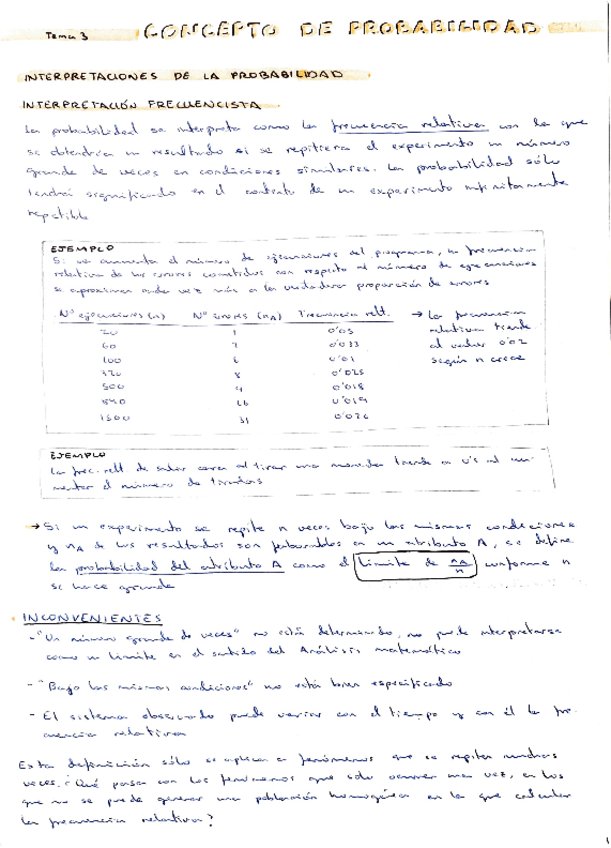 Tema 3 CONCEPTO DE PROBABILIDAD
INTERPRETACIONES DE LA PROBABILIDAD
INTERPRETACIÓN FRECUENCISTA
La probabilidad se interpreta como la frecuencia relativa con la que
se obtendría un resultado si se repitiera el experimento un número
grande de veces en condiciones similares. La probabilidad sólo
tendrá significado en el contexto de un experimento infinitamente
repetible
EJEMPLO
Si se aumenta el número de ejecuciones del programa, la frecuencia
relativa de los errores cometidos con respecto al número de ejecuciones
se aproximan cada vez más a la verdadera proporción de errores
Nº ejecuciones (n) Nº errores (nA) Frecuencia relt.
20 1 0'05
60 2 0'033
100 0'01
320 8 0'025
500 9 0'018
840 16 0'019
1500 31
→ La frecuencia
relativa tiende
al valor 0'02
según n crece
EJEMPLO
La frec. relt. de salir cara al tirar una moneda tiende a 0'5 al au-
mentar el número de tiradas
→ Si un experimento se repite n veces bajo las mismas condiciones
y nA de los resultados son favorables en un atributo A, se define
la probabilidad del atributo A como el límite de nA/n conforme n
se hace grande
INCONVENIENTES
- "Un número grande de veces" no está determinado, no puede interpretarse
como un límite en el sentido del Análisis matemático
- "Bajo las mismas condiciones" no está bien especificado
- El sistema observado puede variar con el tiempo y con él la fre-
cuencia relativa
Esta definición sólo se aplica a fenómenos que se repiten muchas
veces. ¿Qué pasa con los fenómenos que solo ocurren una vez, en los
que no se puede generar una población homogénea en la que calcular
la frecuencia relativa?